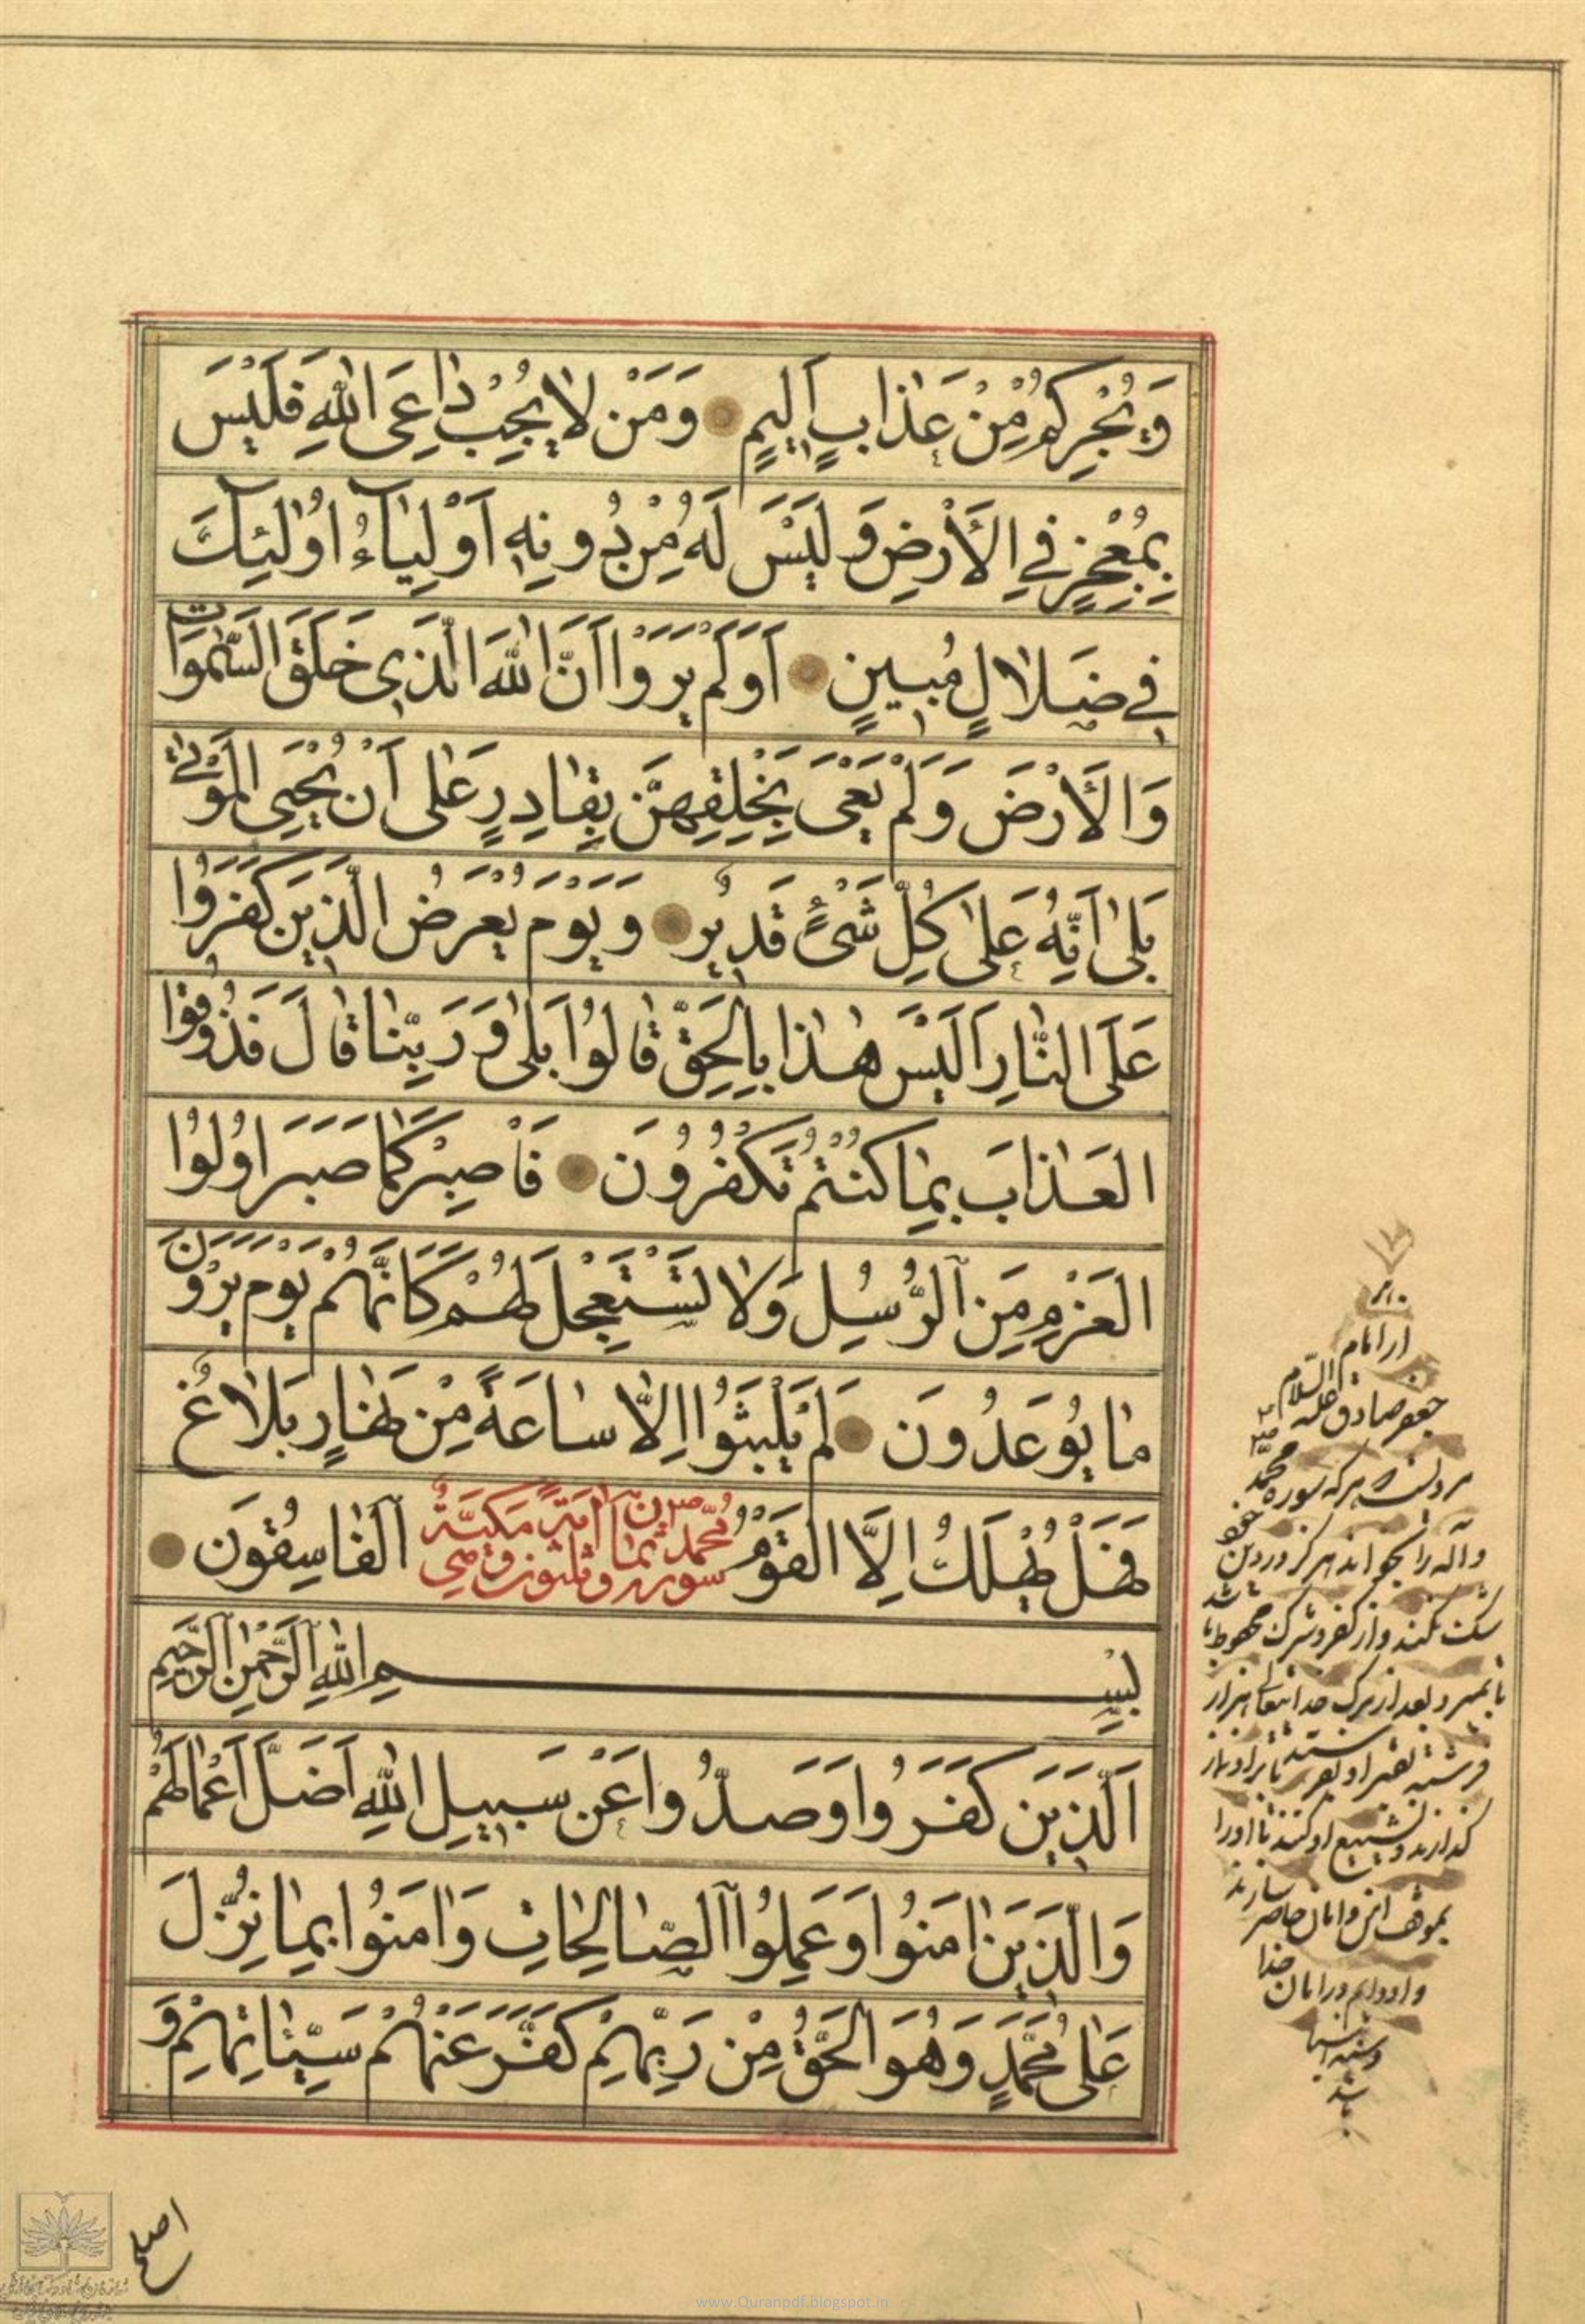 وَيُجِرْكُمْ مِنْ عَذَابٍ اَلِيمٍ وَمَنْ لَا يُجِبْ دَاعِيَ اللهِ فَلَيْسَ
بِمُعْجِزٍ فِي الْأَرْضِ وَلَيْسَ لَهُ مِنْ دُونِهِ اَوْلِيَآءُ اُولٰئِكَ
فِي ضَلَالٍ مُبِينٍ اَوَلَمْ يَرَوْا اَنَّ اللهَ الَّذِي خَلَقَ السَّمٰوَاتِ
وَالْأَرْضَ وَلَمْ يَعْيَ بِخَلْقِهِنَّ بِقَادِرٍ عَلٰى اَنْ يُحْيِيَ الْمَوْتٰى
بَلٰى اِنَّهُ عَلٰى كُلِّ شَيْءٍ قَدِيرٌ وَيَوْمَ يُعْرَضُ الَّذِينَ كَفَرُوا
عَلَى النَّارِ اَلَيْسَ هٰذَا بِالْحَقِّ قَالُوا بَلٰى وَرَبِّنَا قَالَ فَذُوقُوا
الْعَذَابَ بِمَا كُنْتُمْ تَكْفُرُونَ فَاصْبِرْ كَمَا صَبَرَ اُولُوا
الْعَزْمِ مِنَ الرُّسُلِ وَلَا تَسْتَعْجِلْ لَهُمْ كَاَنَّهُمْ يَوْمَ يَرَوْنَ
مَا يُوعَدُونَ لَمْ يَلْبَثُوا اِلَّا سَاعَةً مِنْ نَهَارٍ بَلَاغٌ
فَهَلْ يُهْلَكُ اِلَّا الْقَوْمُ الْفَاسِقُونَ
سورة محمد ثمان وثلثون اية مكية وهي
بِسْمِ اللهِ الرَّحْمٰنِ الرَّحِيمِ
اَلَّذِينَ كَفَرُوا وَصَدُّوا عَنْ سَبِيلِ اللهِ اَضَلَّ اَعْمَالَهُمْ
وَالَّذِينَ اٰمَنُوا وَعَمِلُوا الصَّالِحَاتِ وَاٰمَنُوا بِمَا نُزِّلَ
عَلٰى مُحَمَّدٍ وَهُوَ الْحَقُّ مِنْ رَبِّهِمْ كَفَّرَ عَنْهُمْ سَيِّئَاتِهِمْ وَ
اصلح
از امام
جعفر صادق علیه السلام
هرکه سوره محمد
واله را بخواند هرگز در دین
شک نکند و از کفر و شرک محفوظ باشد
تا بمیرد و بعد از مرگ خدایتعالی هزار
فرشته بقبر او بفرستد تا بر او نماز
گذارند و تشییع او کنند تا او را
بموقف امن و امان حاضر سازند
و او دایم در امان خدا
باشد
www.Quranpdf.blogspot.in